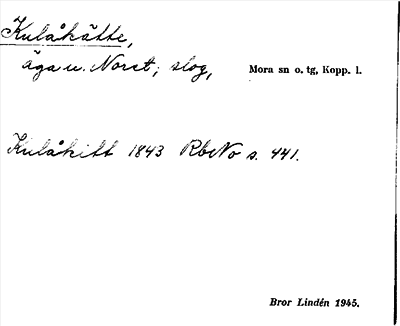 Kulåkätte,
äga u. Noret; slog, Mora sn o. tg, Kopp. l.
Kulåkitt 1843 RbNo s. 441.
Bror Lindén 1945.